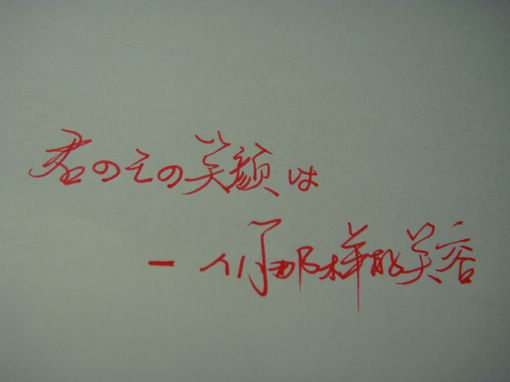 君のその笑顔は
— 你那样的笑容